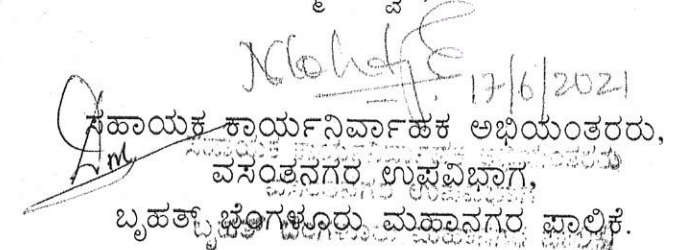 17/6/2021
ಸಹಾಯಕ ಕಾರ್ಯನಿರ್ವಾಹಕ ಅಭಿಯಂತರರು,
ವಸಂತನಗರ ಉಪವಿಭಾಗ,
ಬೃಹತ್ ಬೆಂಗಳೂರು ಮಹಾನಗರ ಪಾಲಿಕೆ.